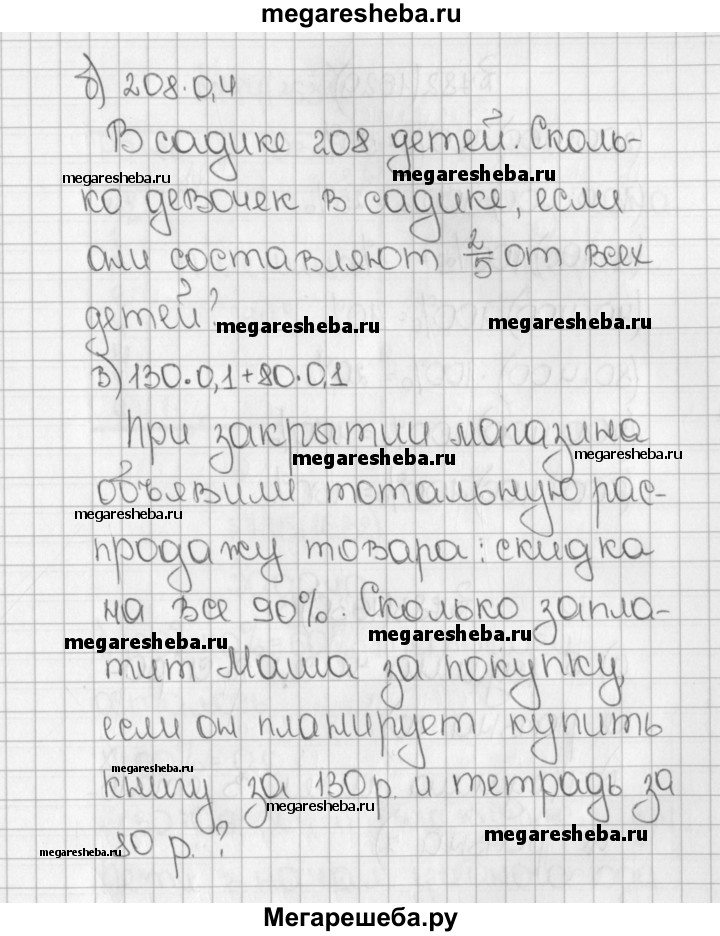 megaresheba.ru
б) 208·0,4
В садике 208 детей. Сколь-
megaresheba.ru
megaresheba.ru
ко девочек в садике, если
они составляют 2/5 от всех
детей?
megaresheba.ru
megaresheba.ru
в) 130·0,1+80·0,1
При закрытии магазина
megaresheba.ru
megaresheba.ru
объявили тотальную рас-
megaresheba.ru
продажу товара: скидка
на все 90%. Сколько запла-
megaresheba.ru
megaresheba.ru
тит Маша за покупку,
если он планирует купить
megaresheba.ru
книгу за 130 р. и тетрадь за
megaresheba.ru
80 р.?
megaresheba.ru
megaresheba.ru
Мегарешеба.ру